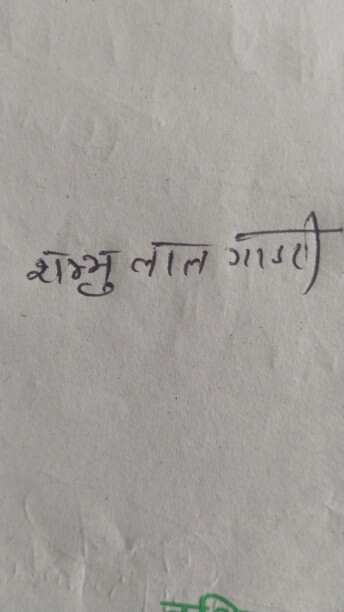 शम्भु लाल गाडरी